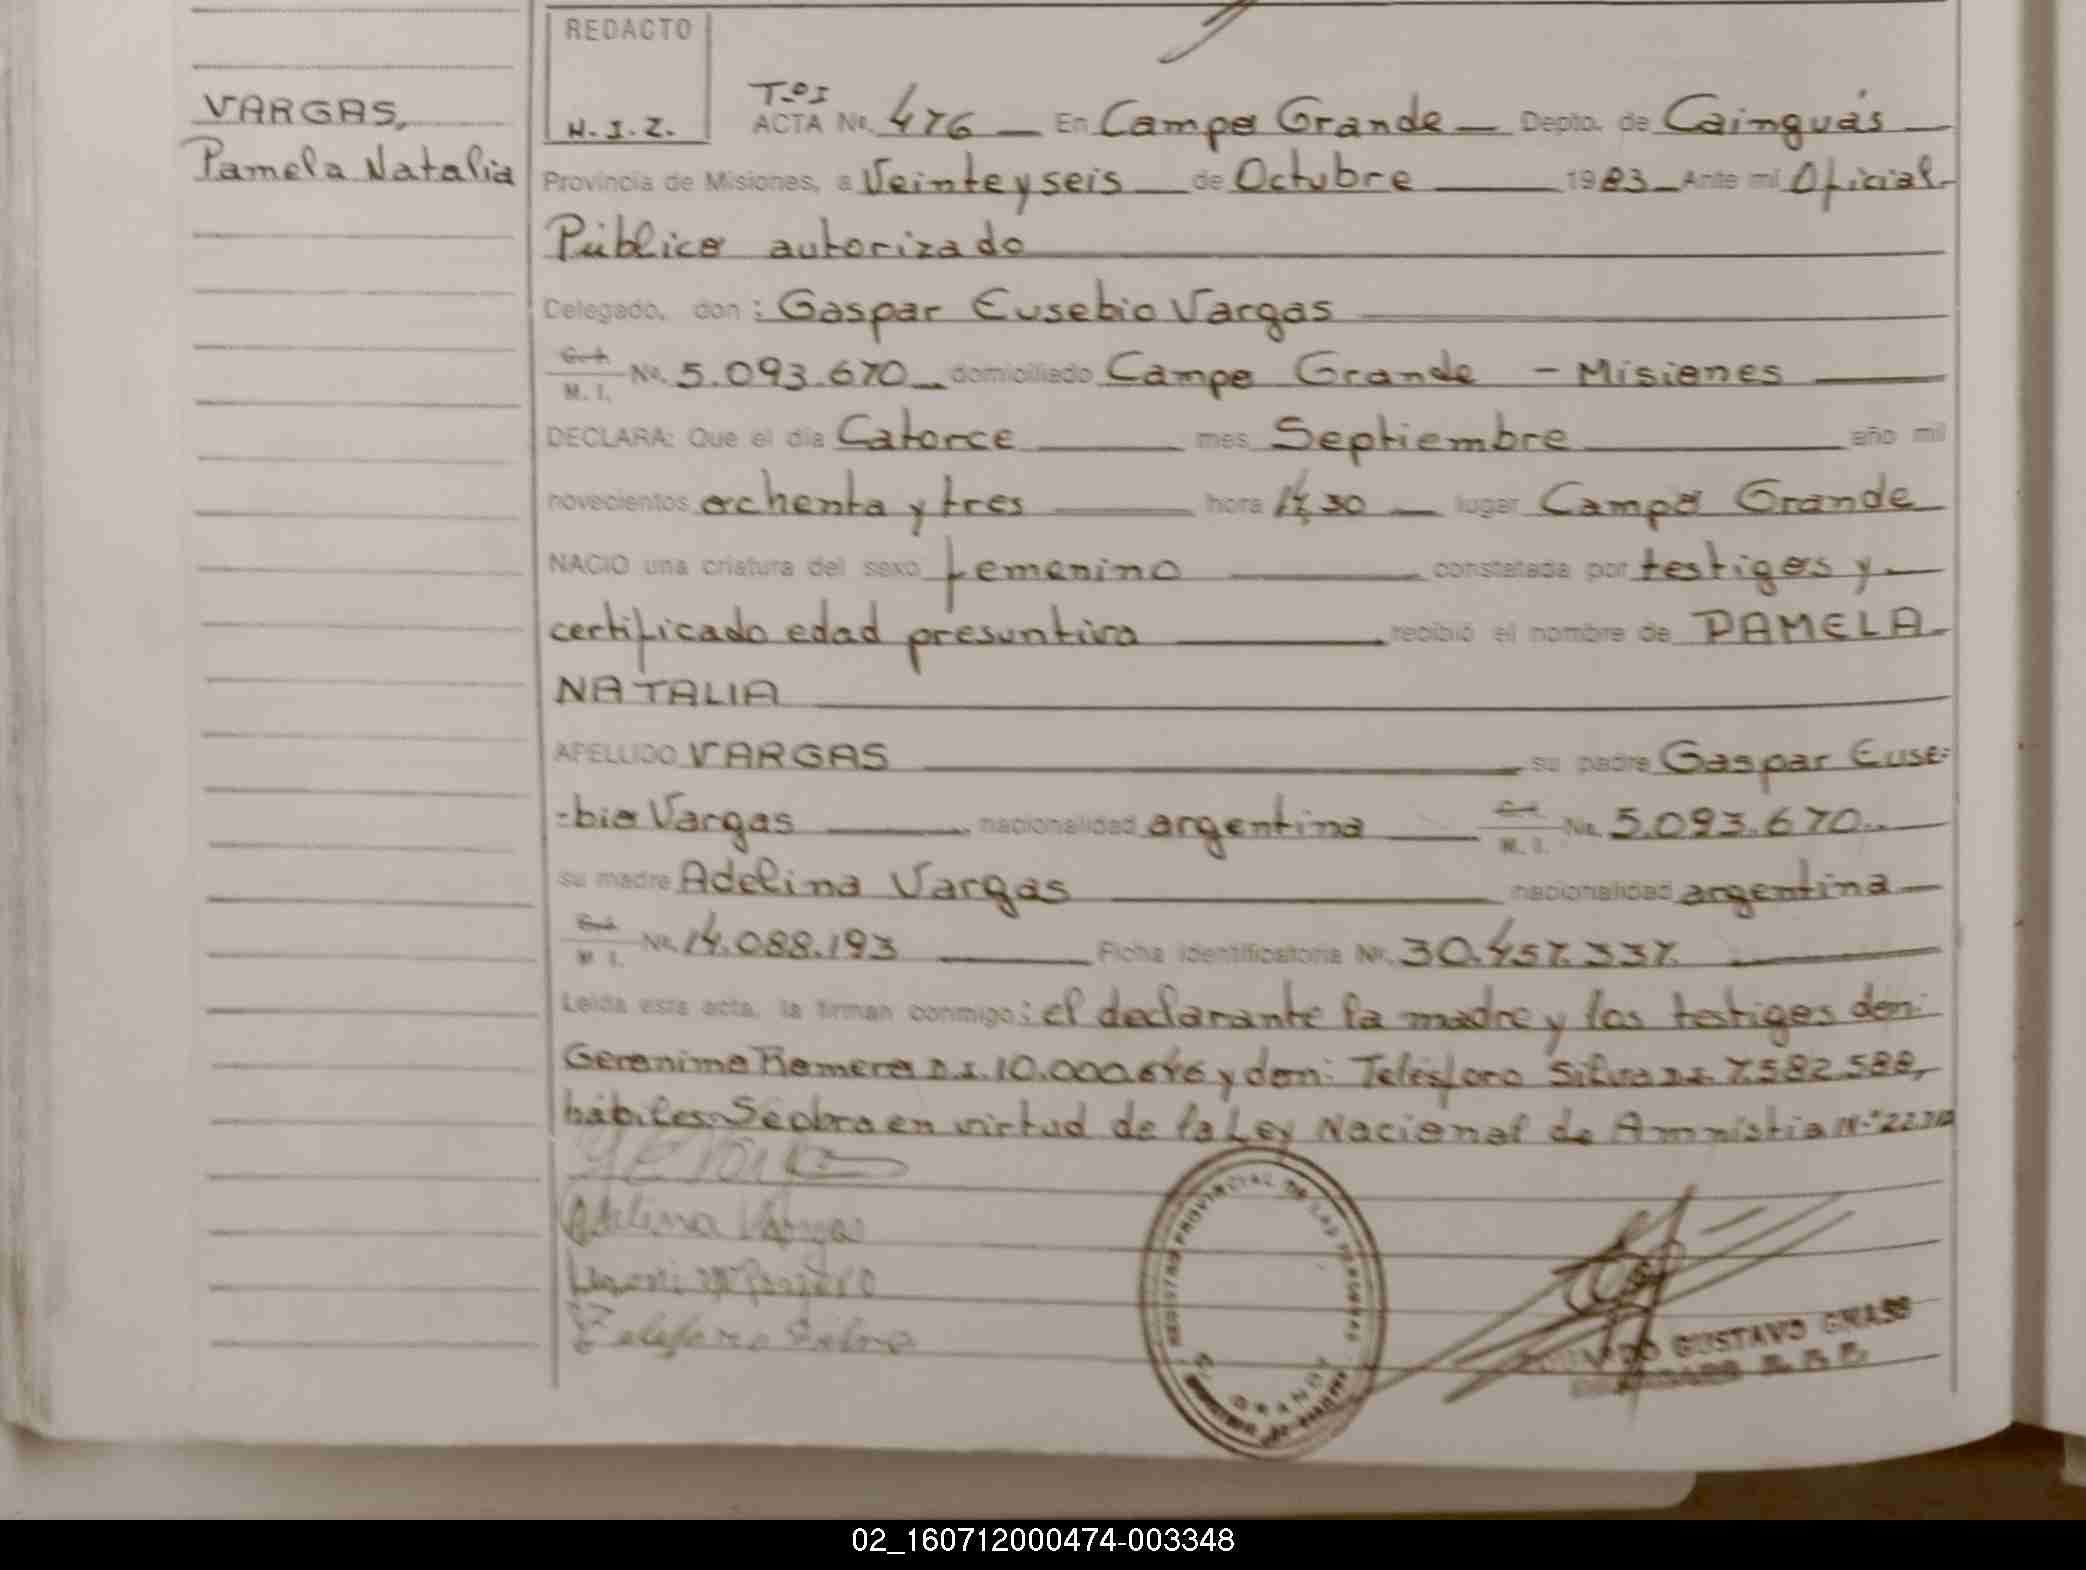 REDACTO
H.I.Z.
VARGAS,
Pamela Natalia
Tº I
ACTA No. 476 En Campo Grande Depto. de Cainguás
Provincia de Misiones, a Veinte y seis de Octubre 1983 Ante mí Oficial
Público autorizado
Delegado, don: Gaspar Eusebio Vargas
M. I. No. 5.093.670 domiciliado Campo Grande - Misiones
DECLARA: Que el día Catorce mes Septiembre año mil
novecientos ochenta y tres hora lugar Campo Grande
NACIO una criatura del sexo femenino constatada por testigos y
certificado edad presuntiva recibió el nombre de PAMELA
NATALIA
APELLIDO VARGAS su padre Gaspar Euse=
=bio Vargas nacionalidad argentina M. I. No. 5.093.670
su madre Adelina Vargas nacionalidad argentina
M. I. No. 14.088.193 Ficha identificatoria Nr. 30.457.337.
Leída esta acta, la firman conmigo: el declarante la madre y los testigos don:
Geronimo Romero D.I. y don: Telésforo Silva D.I. 7.582.588,
hábiles. Se obra en virtud de la Ley Nacional de Amnistia
Adelina Vargas
Telesforo Silva
REGISTRO PROVINCIAL DE LAS PERSONAS
GUSTAVO
02_160712000474-003348